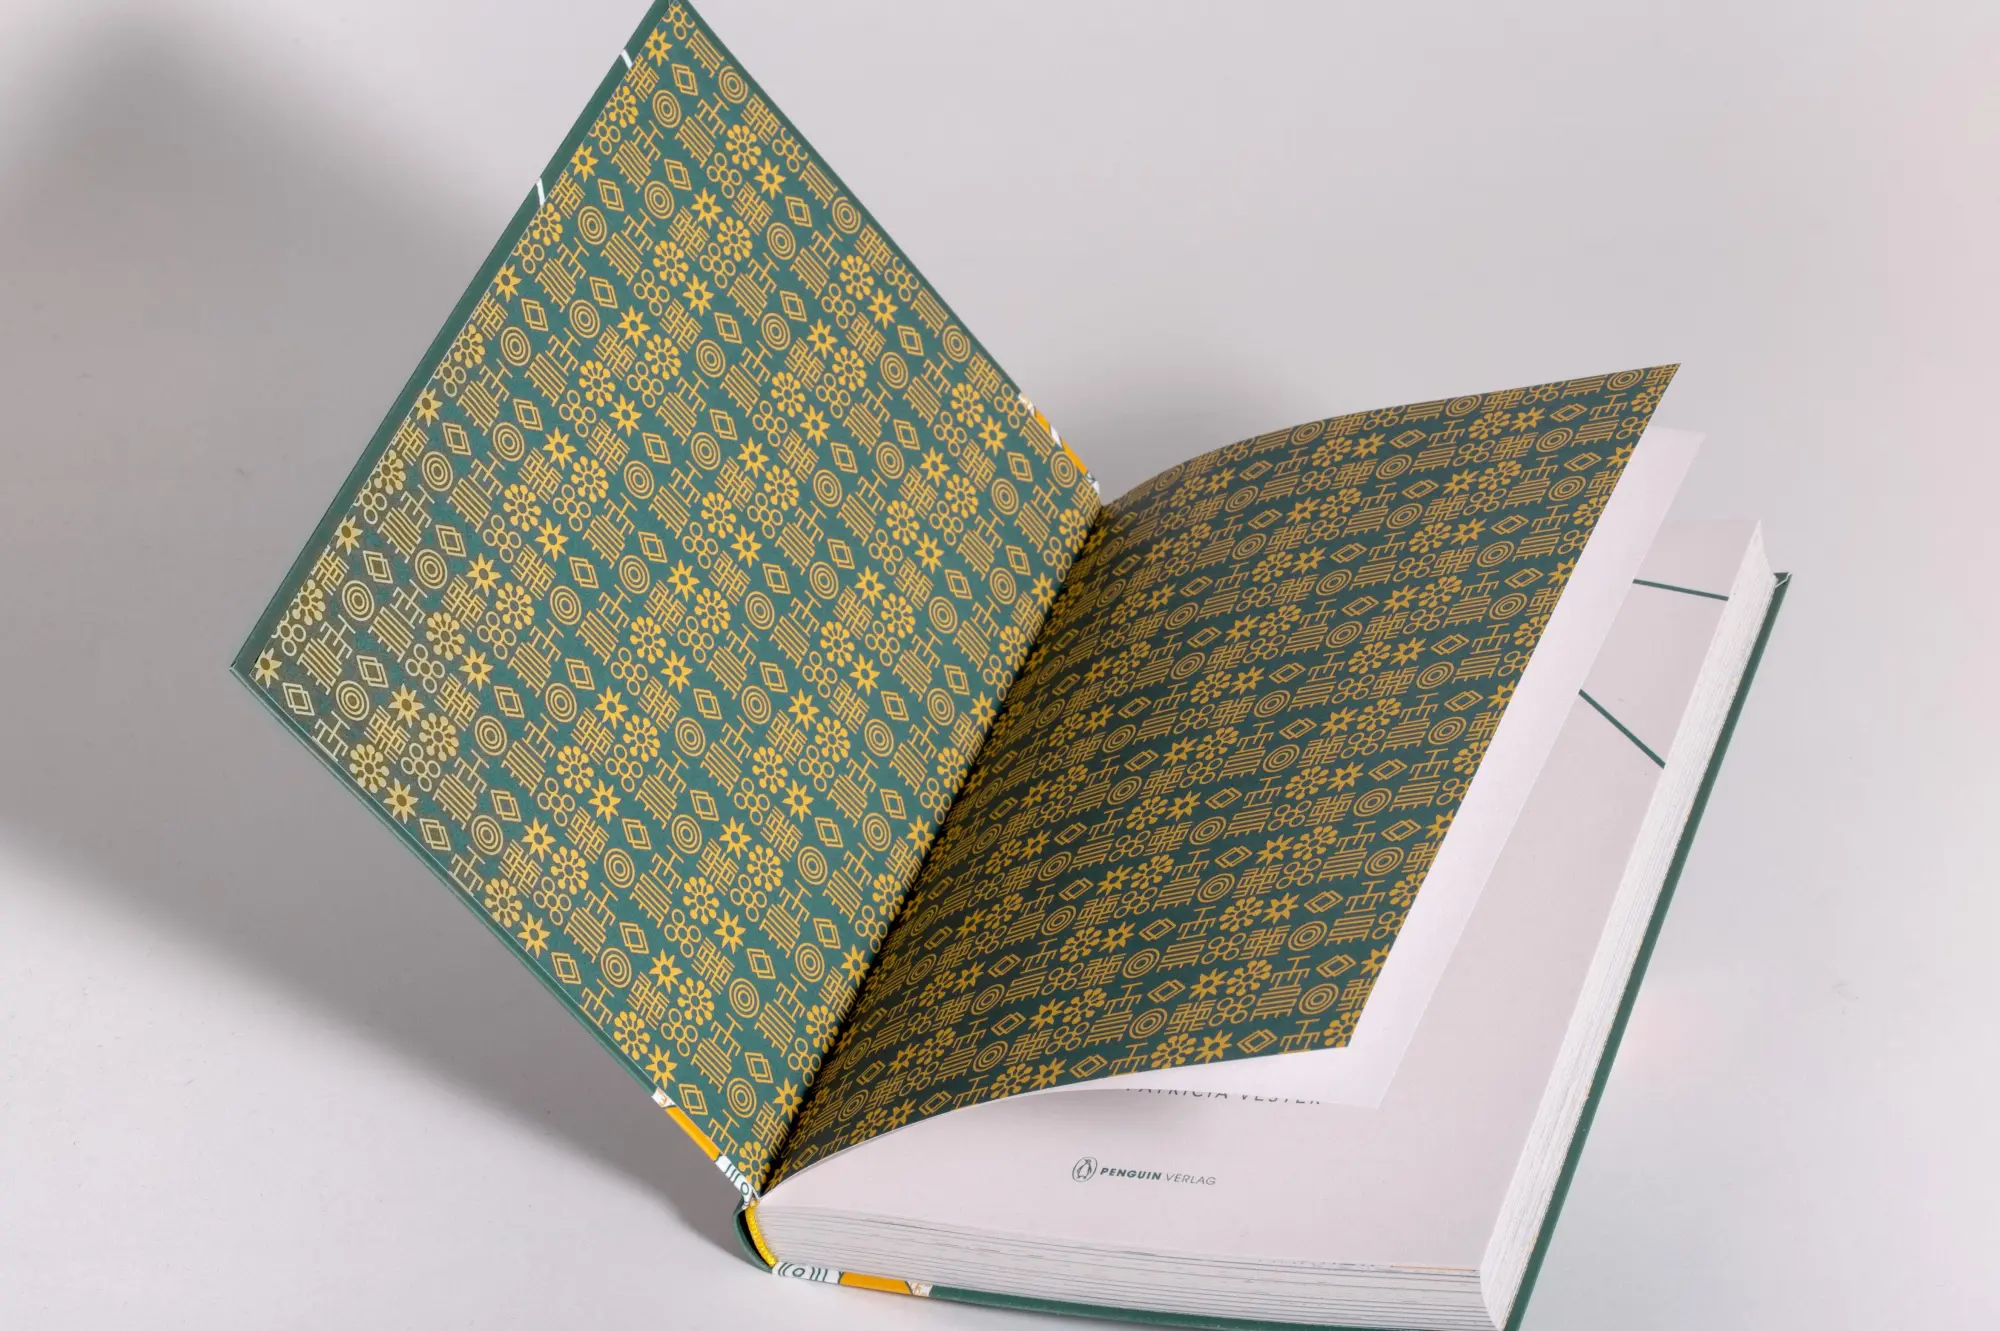 PATRICIA VESTER
PENGUIN VERLAG